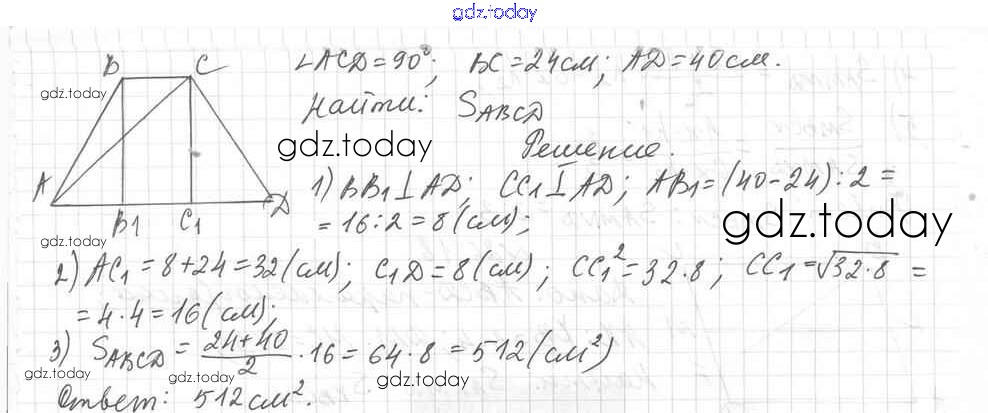 gdz.today
B C ∠ACD = 90°; BC = 24 см; AD = 40 см.
gdz.today Найти: SABCD
gdz.today Решение.
A D 1) BB1 ⊥ AD; CC1 ⊥ AD; AB1 = (40 - 24) : 2 =
B1 C1 = 16 : 2 = 8 (см); gdz.today
gdz.today
2) AC1 = 8 + 24 = 32 (см); C1D = 8 (см); CC1² = 32 · 8; CC1 = √32 · 8 =
= 4 · 4 = 16 (см);
3) SABCD = (24 + 40)/2 · 16 = 64 · 8 = 512 (см²)
gdz.today gdz.today gdz.today
Ответ: 512 см².